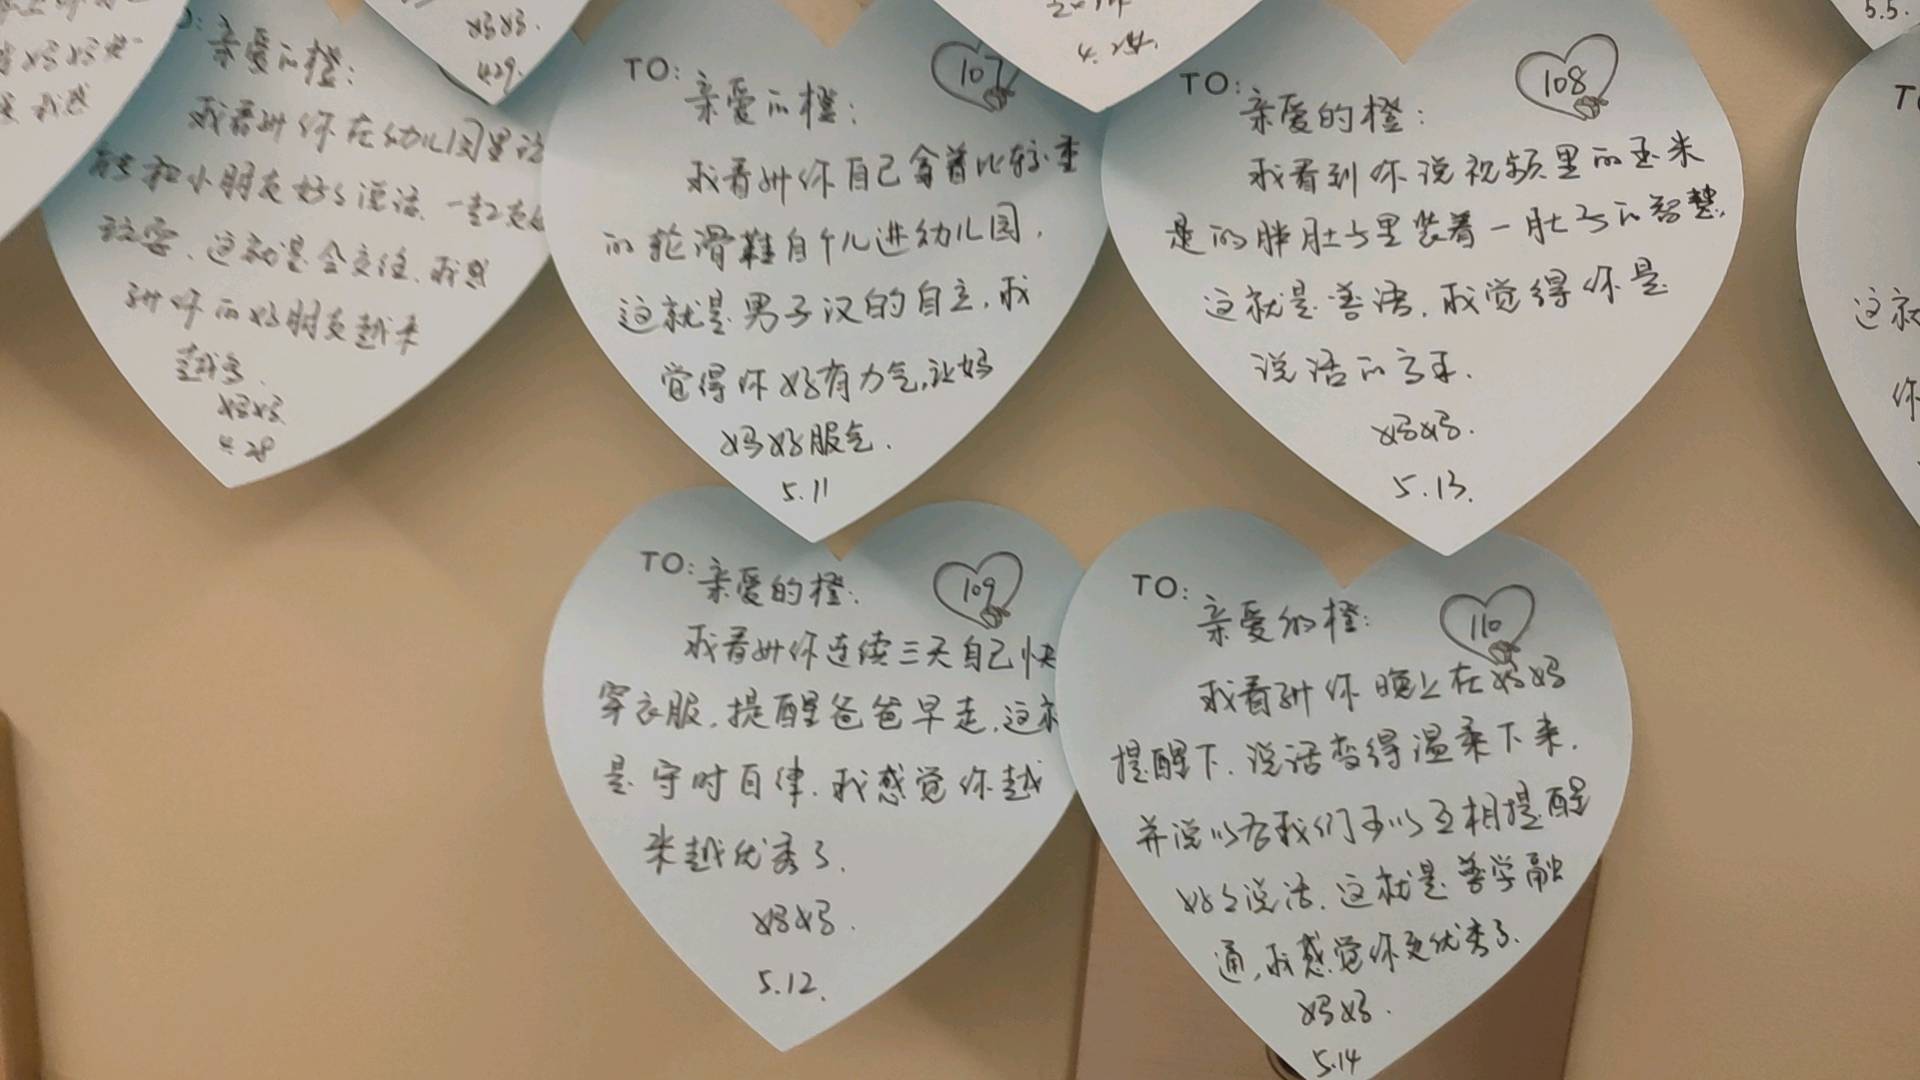 妈妈.
4.29.
4.24.
5.5.
亲爱的橙:
我看到你在幼儿园里
和小朋友好好说话、一起
玩耍、这就是会交往.我感
到你的好朋友越来
越多.
妈妈
4.28
TO: 亲爱的橙: 107
我看到你自己拿着比较重
的轮滑鞋自个儿进幼儿园,
这就是男子汉的自立,我
觉得你好有力气,让妈
妈好服气.
5.11
TO: 亲爱的橙: 108
我看到你说视频里的玉米
是的胖肚子里装着一肚子的智慧,
这就是善语,我觉得你是
说话的高手.
妈妈.
5.13.
这就
你
TO: 亲爱的橙: 109
我看到你连续三天自己快
穿衣服,提醒爸爸早走,这就
是守时自律.我感觉你越
来越优秀了.
妈妈.
5.12.
TO: 亲爱的橙: 110
我看到你晚上在妈妈
提醒下,说话变得温柔下来.
并说以后我们可以互相提醒
好好说话.这就是善学融
通,我感觉你更优秀了.
妈妈.
5.14